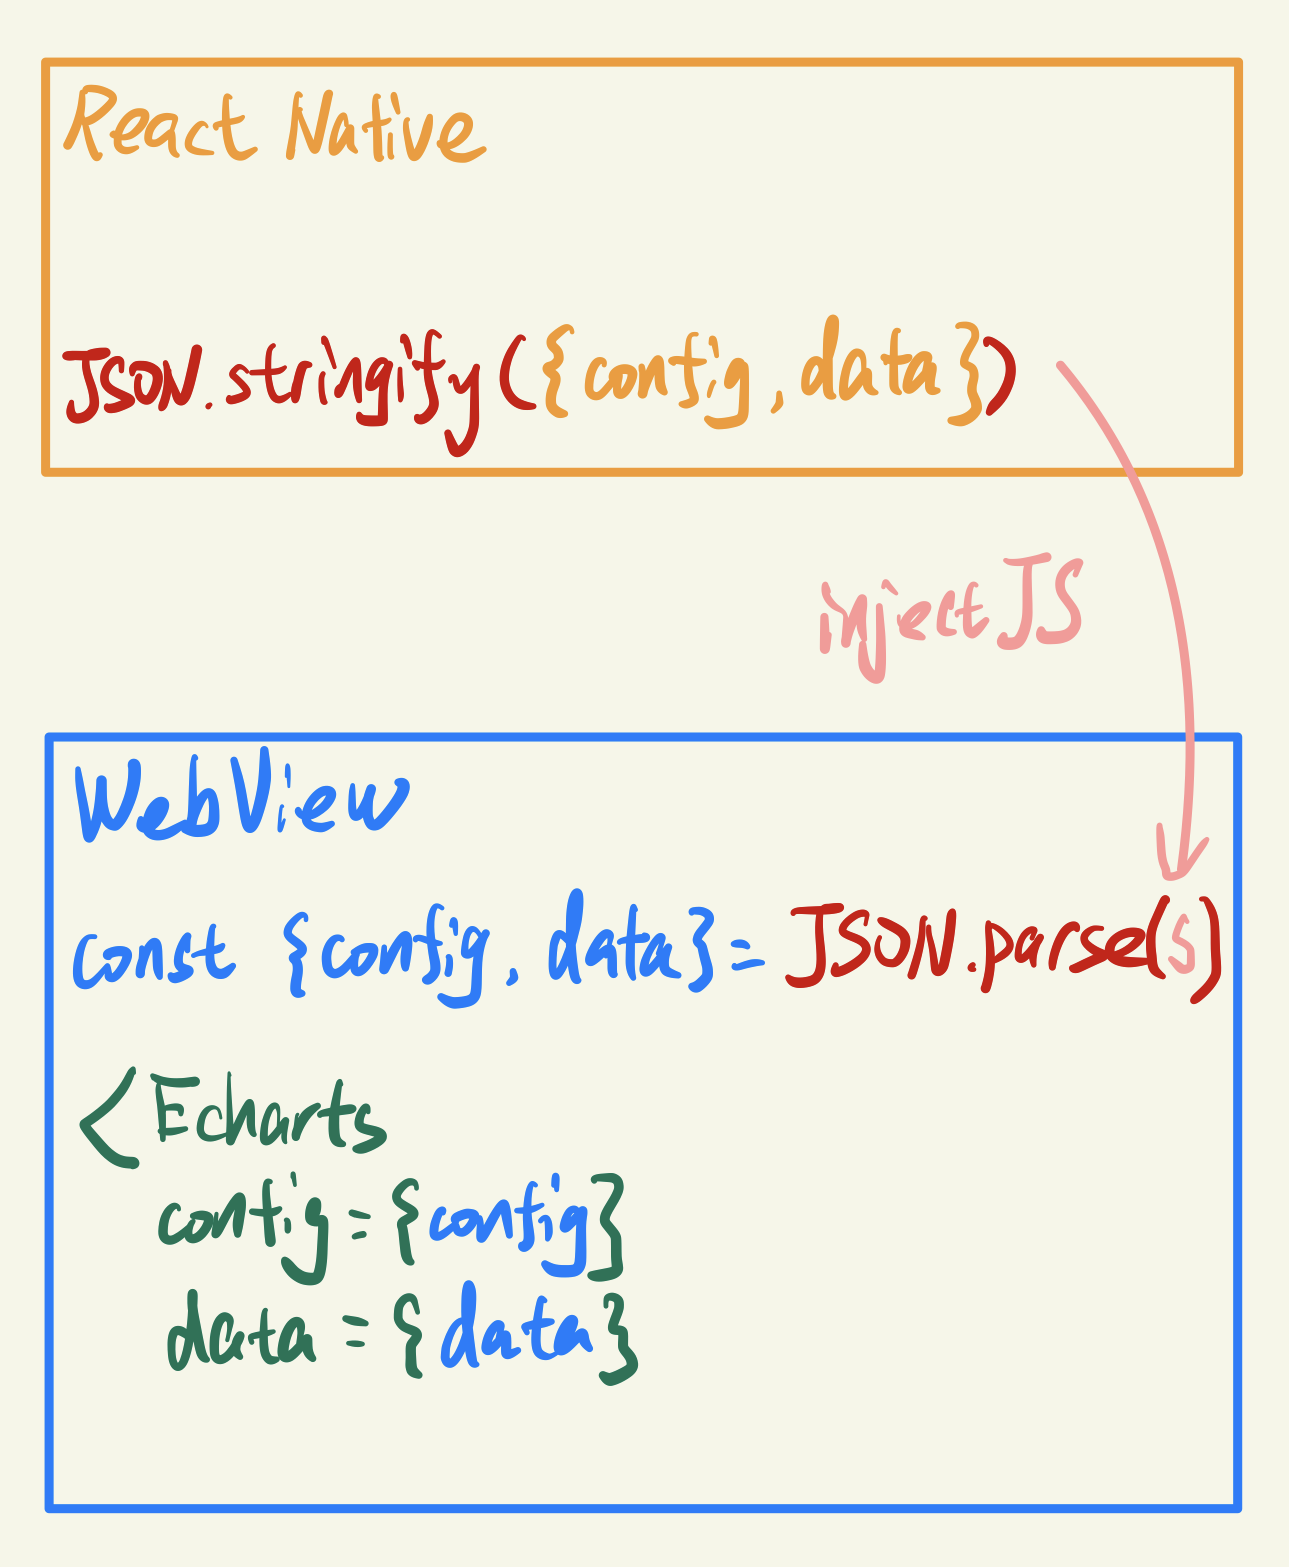 React Native
JSON.stringify({config, data})
injectJS
WebView
const {config, data} = JSON.parse(s)
<Echarts
config={config}
data={data}